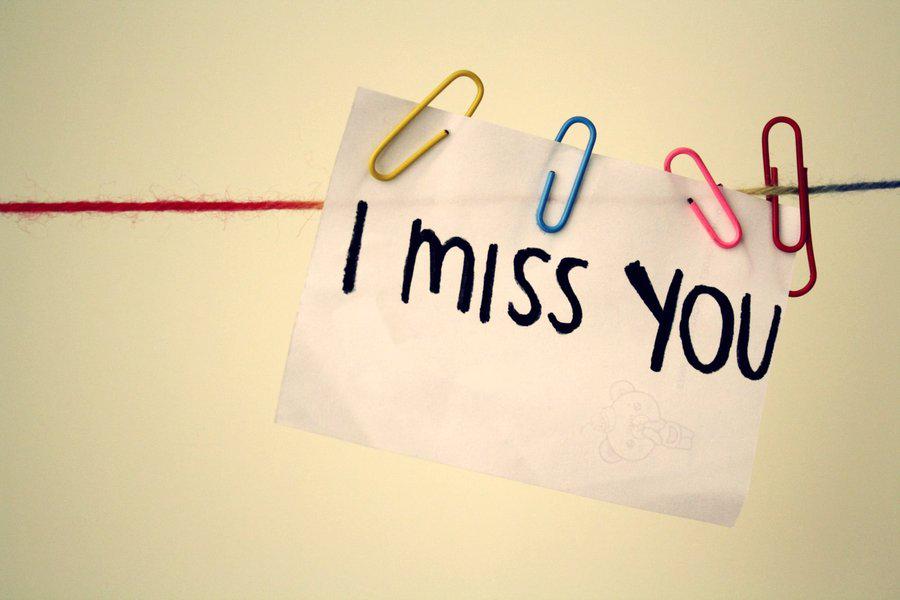 I mISS YOU